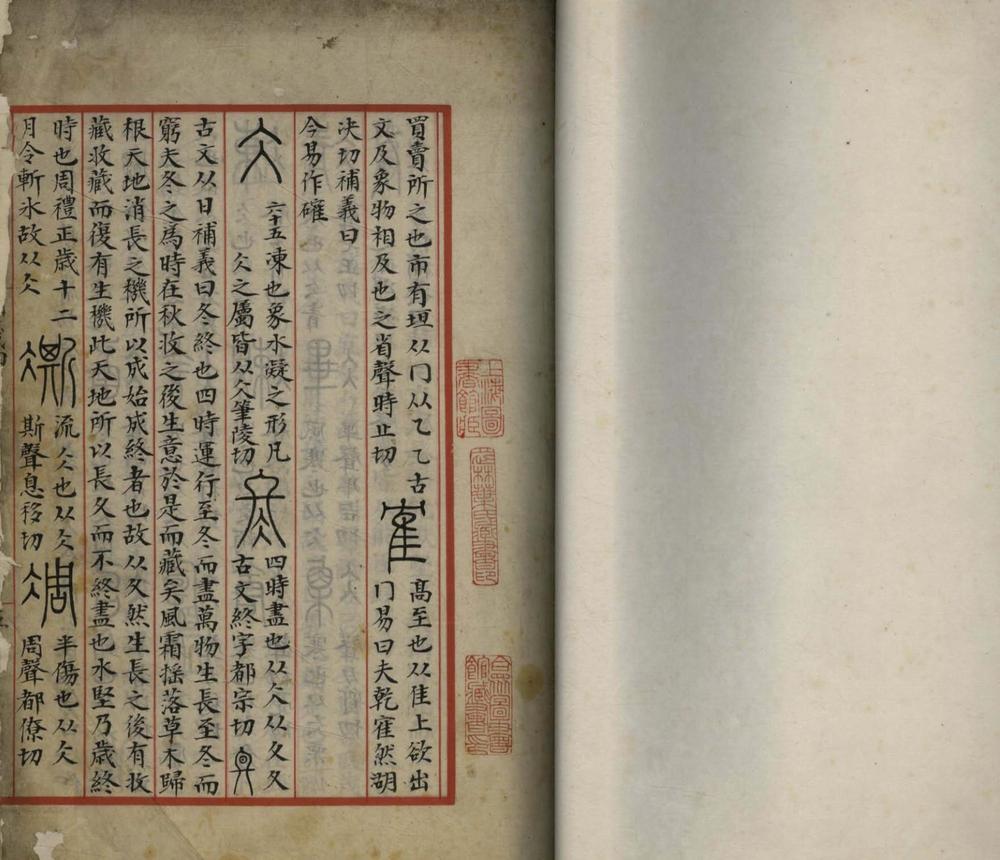 買賣所之也市有垣从冂从乁乁古
文及象物相及也之省聲時止切
隺
髙至也从隹上欲出
冂易曰夫乾隺然胡
决切補義曰
今易作確
仌
六十五凍也象水凝之形凡
仌之屬皆从仌筆陵切
冬
四時盡也从仌从夂夂
古文終字都宗切
古文从日補義曰冬終也四時運行至冬而盡萬物生長至冬而
窮夫冬之為時在秋收之後生意於是而藏矣風霜揺落草木歸
根天地消長之機所以成始成終者也故从夂然生長之後有收
藏收藏而復有生機此天地所以長久而不終盡也水堅乃歲終
時也周禮正歲十二
月令斬冰故从仌
凘
流仌也从仌
斯聲息移切
凋
半傷也从仌
周聲都僚切
上海圖書館藏
武林葉氏藏書印
合衆圖書館藏書印